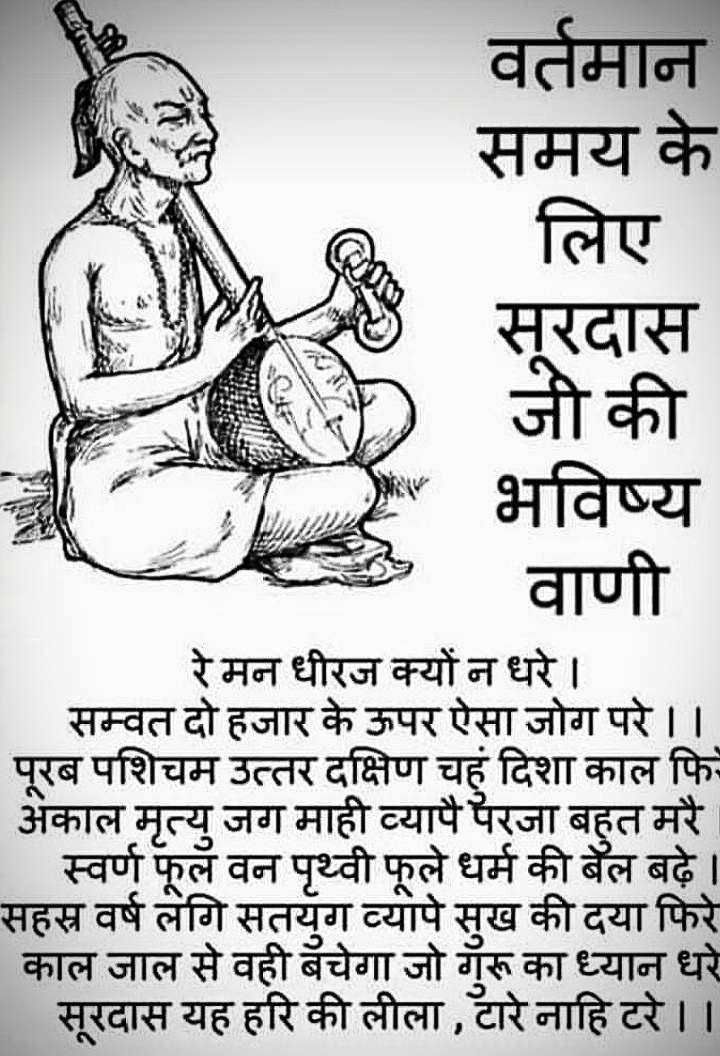 वर्तमान
समय के
लिए
सूरदास
जी की
भविष्य
वाणी
रे मन धीरज क्यों न धरे ।
सम्वत दो हजार के ऊपर ऐसा जोग परे ।।
पूरब पशिचम उत्तर दक्षिण चहुं दिशा काल फिरे
अकाल मृत्यु जग माही व्यापै परजा बहुत मरै ।
स्वर्ण फूल वन पृथ्वी फूले धर्म की बेल बढ़े ।
सहस्र वर्ष लगि सतयुग व्यापे सुख की दया फिरे
काल जाल से वही बचेगा जो गुरू का ध्यान धरे
सूरदास यह हरि की लीला , टारे नाहि टरे ।।